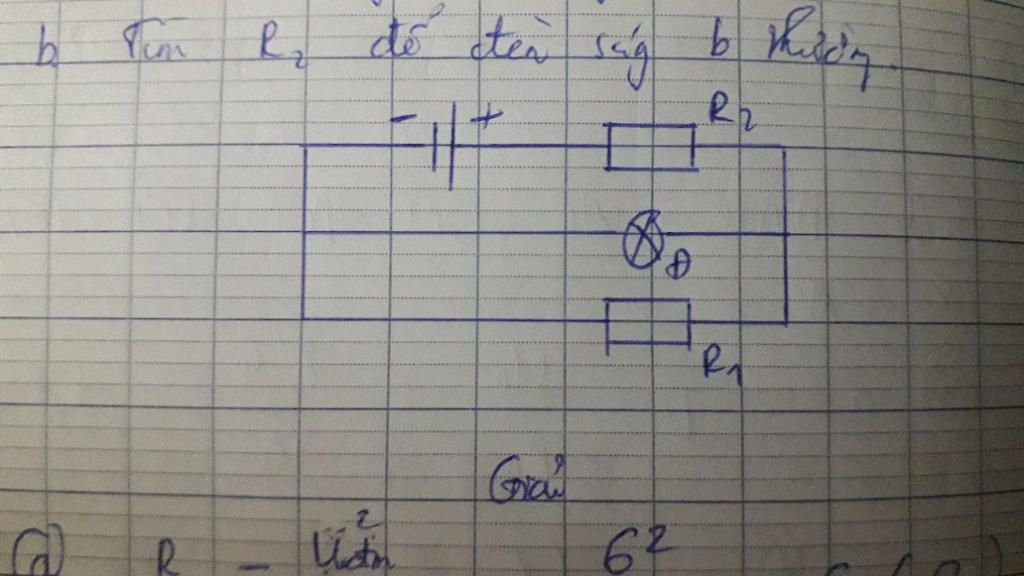 b, Tìm R2 để đèn ság b thường
- + R2
Đ
R1
Giải
a) R = U²đm 6²